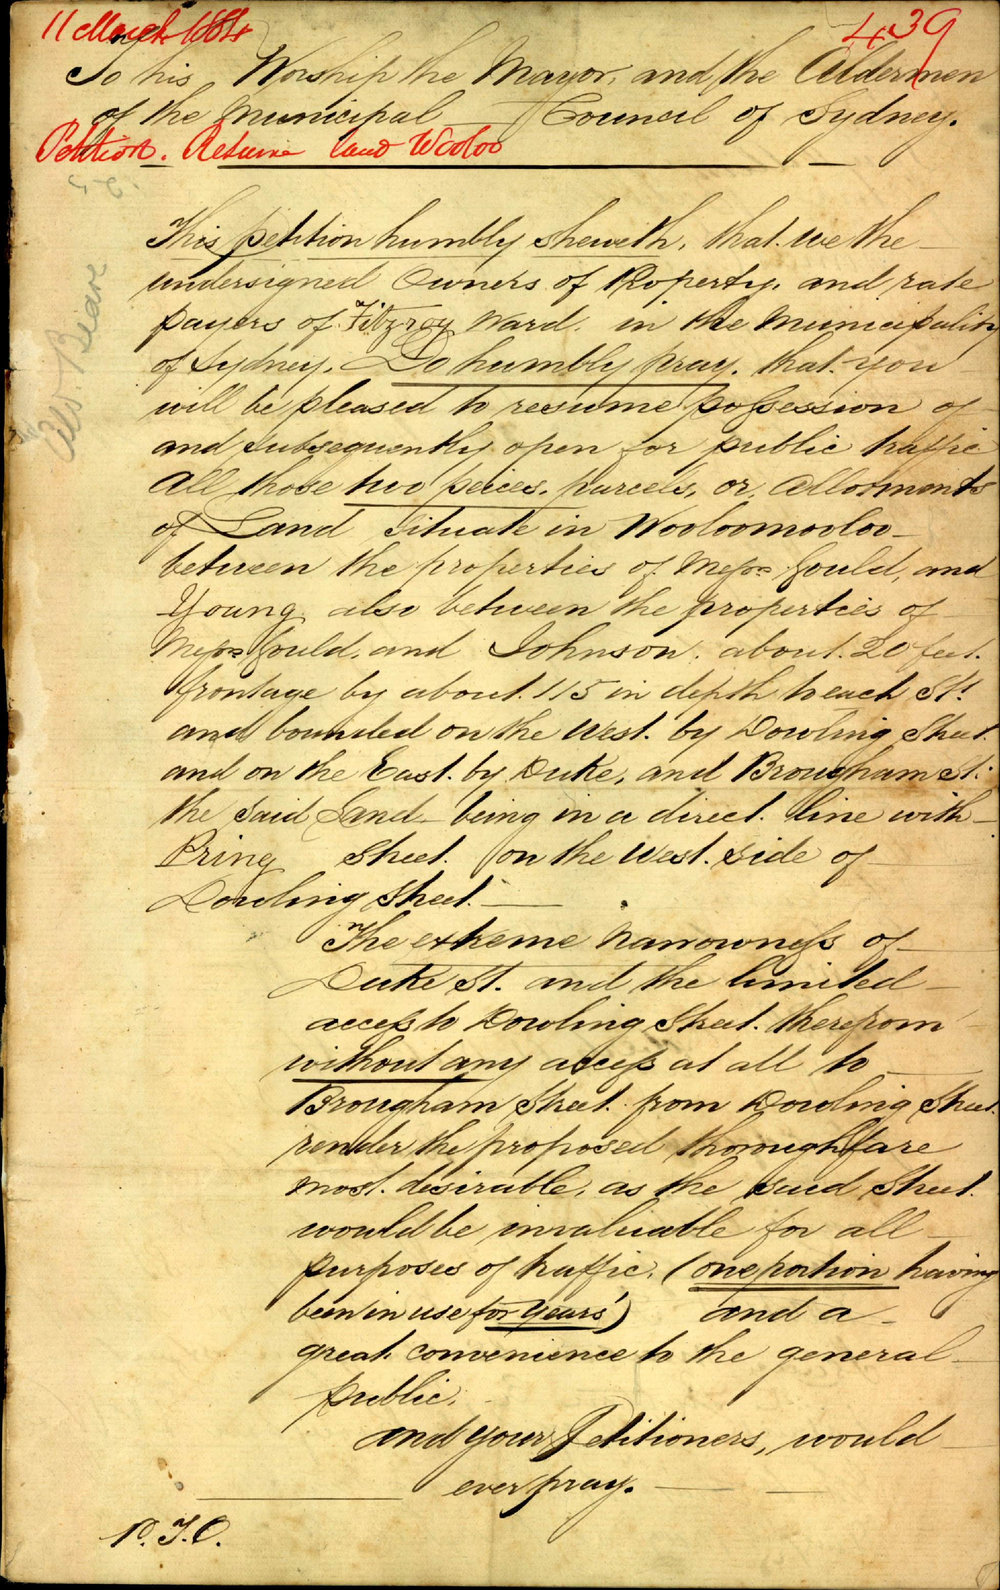 11 March 1884
439
To his Worship the Mayor, and the Aldermen
of the Municipal Council of Sydney.
Petition. Resume land Wooloo
This petition humbly sheweth, that we the
undersigned Owners of Property, and rate
payers of Fitzroy Ward. in the Municipality
of Sydney. Do humbly pray, that you
will be pleased to resume possession of
and subsequently open for public traffic
all those two peices, parcels, or, Allotments
of Land situate in Wooloomooloo
between the properties of Messrs Gould, and
Young also between the properties of
Messrs Gould, and Johnson. about 20 feet.
frontage by about 115 in depth to each St.
and bounded on the West. by Dowling Street.
and on the East. by Duke, and Brougham St.
the said Land being in a direct line with
Pring Street. on the West. side of
Dowling Street.
The extreme narrowness of
Duke St. and the limited
access to Dowling Street. therefrom
without any access at all to
Brougham Street. from Dowling Street.
render the proposed thoroughfare
most desirable, as the said Street.
would be invaluable for all
purposes of traffic. (one portion having
been in use for years') and a
great convenience to the general
public.
and your Petitioners, would
ever pray.
P.T.O.